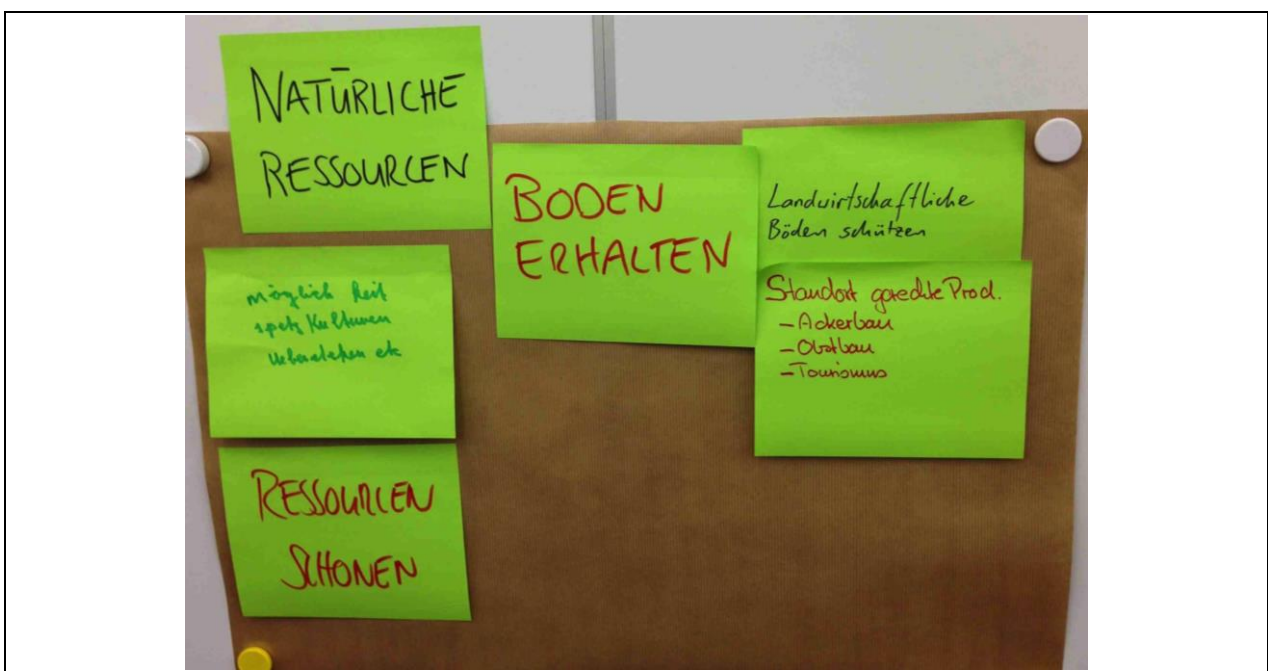 NATÜRLICHE
RESSOURCEN
BODEN
ERHALTEN
Landwirtschaftliche
Böden schützen
Standort gerechte Prod.
- Ackerbau
- Obstbau
- Tourismus
möglich
spez Kulturen
etc
RESSOURCEN
SCHONEN